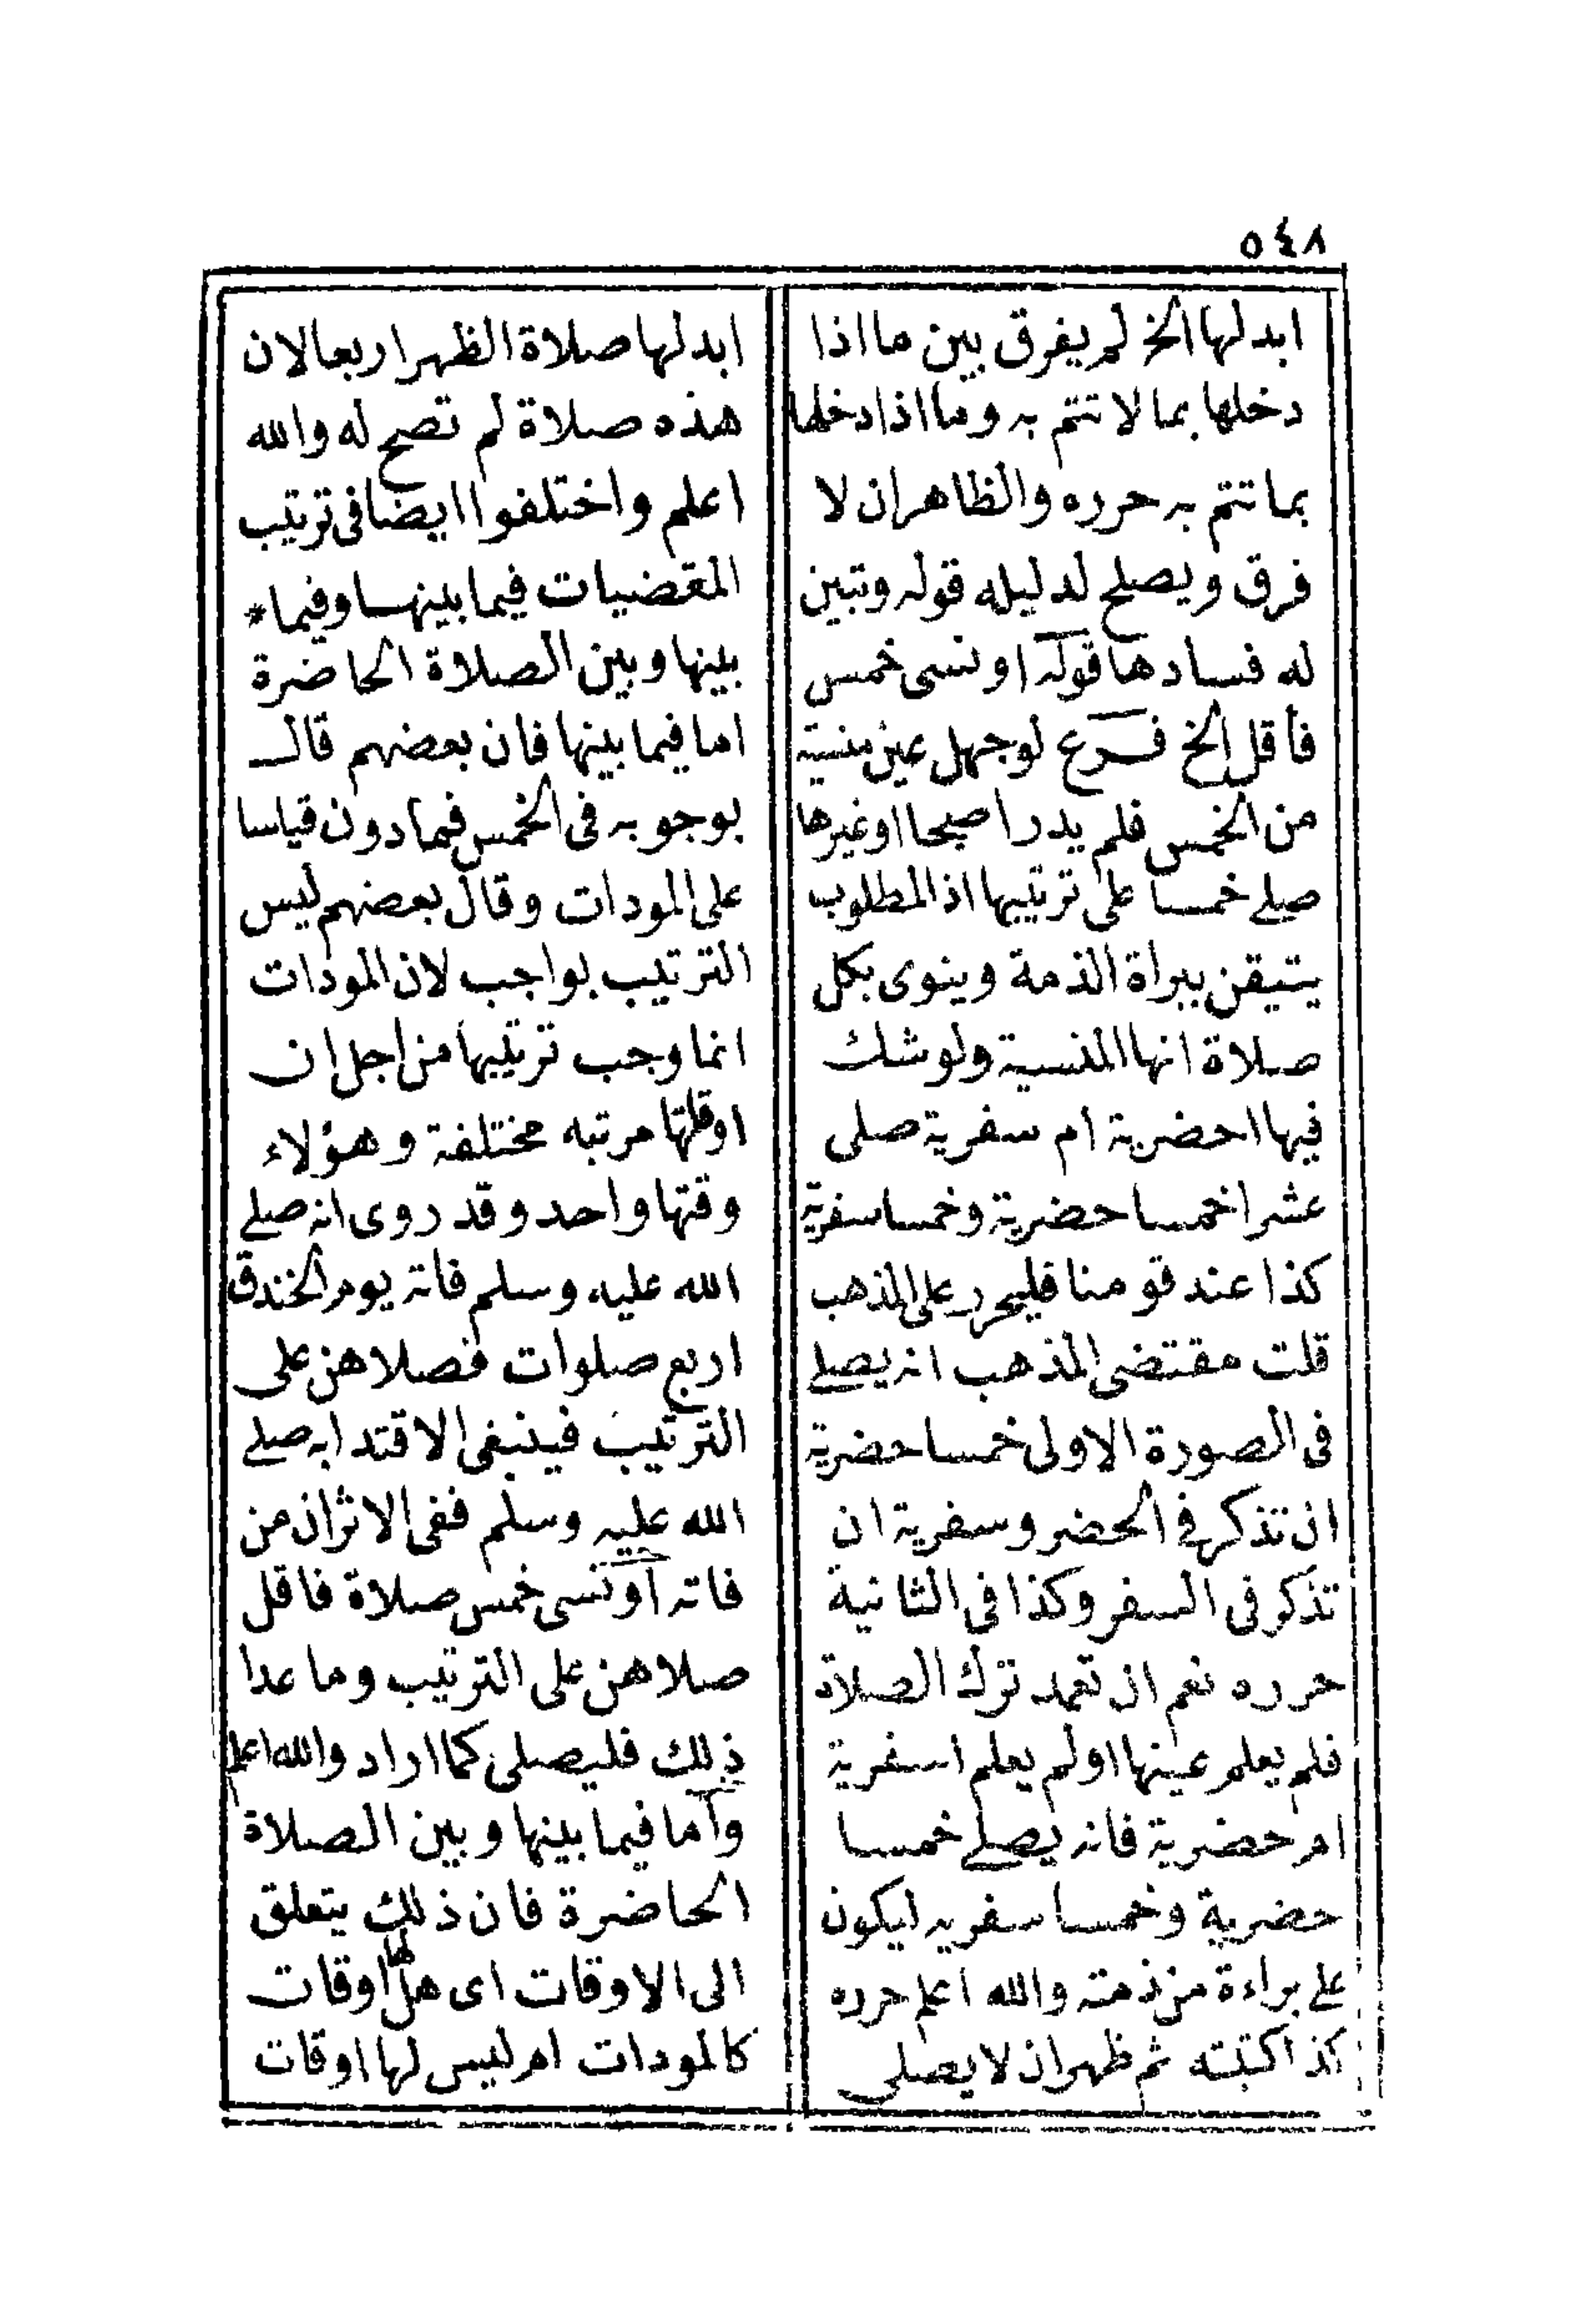 ٥٤٨
ابدلها الخ لم يفرق بين ما اذا
دخلها بما لا تتم به وما اذا دخلها
بما تتم به حرره والظاهر ان لا
فرق ويصلح لدليله قوله وتبين
له فسادها قوله او نسى خمس
فأقل الخ فرع لو جهل عين منسيته
من الخمس فلم يدر اصبحا او غيرها
صلى خمسا على ترتيبها اذ المطلوب
يتيقن ببراة الذمة وينوى بكل
صلاة انها المنسية ولو شك
فيها احضرية ام سفرية صلى
عشرا خمسا حضرية وخمسا سفرية
كذا عند قومنا فليحرر على المذهب
قلت مقتضى المذهب انه يصلى
فى الصورة الاولى خمسا حضرية
ان تذكر فى الحضر وسفرية ان
تذكر فى السفر وكذا فى الثانية
حرره نعم ان تعمد ترك الصلاة
فلم يعلم عينها او لم يعلم اسفرية
ام حضرية فانه يصلى خمسا
حضرية وخمسا سفريه ليكون
على براءة من ذمته والله اعلم حرره
كذا كتبته ثم ظهر ان لا يصلى
ابدلها صلاة الظهر اربعا لان
هذه صلاة لم تصح له والله
اعلم واختلفوا ايضا فى ترتيب
المقضيات فيما بينها وفيما *
بينها وبين الصلاة الحاضرة
اما فيما بينها فان بعضهم قال
بوجوبه فى الخمس فما دون قياسا
على المودات وقال بعضهم ليس
الترتيب بواجب لان المودات
انما وجب ترتيبها من اجل ان
اوقاتها مرتبه مختلفة وهؤلاء
وقتها واحد وقد روى انه صلى
الله عليه وسلم فاته يوم الخندق
اربع صلوات فصلاهن على
الترتيب فينبغى الاقتدا به صلى
الله عليه وسلم ففى الاثر ان من
فاته او نسى خمس صلاة فاقل
صلاهن على الترتيب وما عدا
ذلك فليصلى كما اراد والله اعلم
واما فيما بينها وبين الصلاة
الحاضرة فان ذلك يتعلق
الى الاوقات اى هل لها اوقات
كالمودات ام ليس لها اوقات